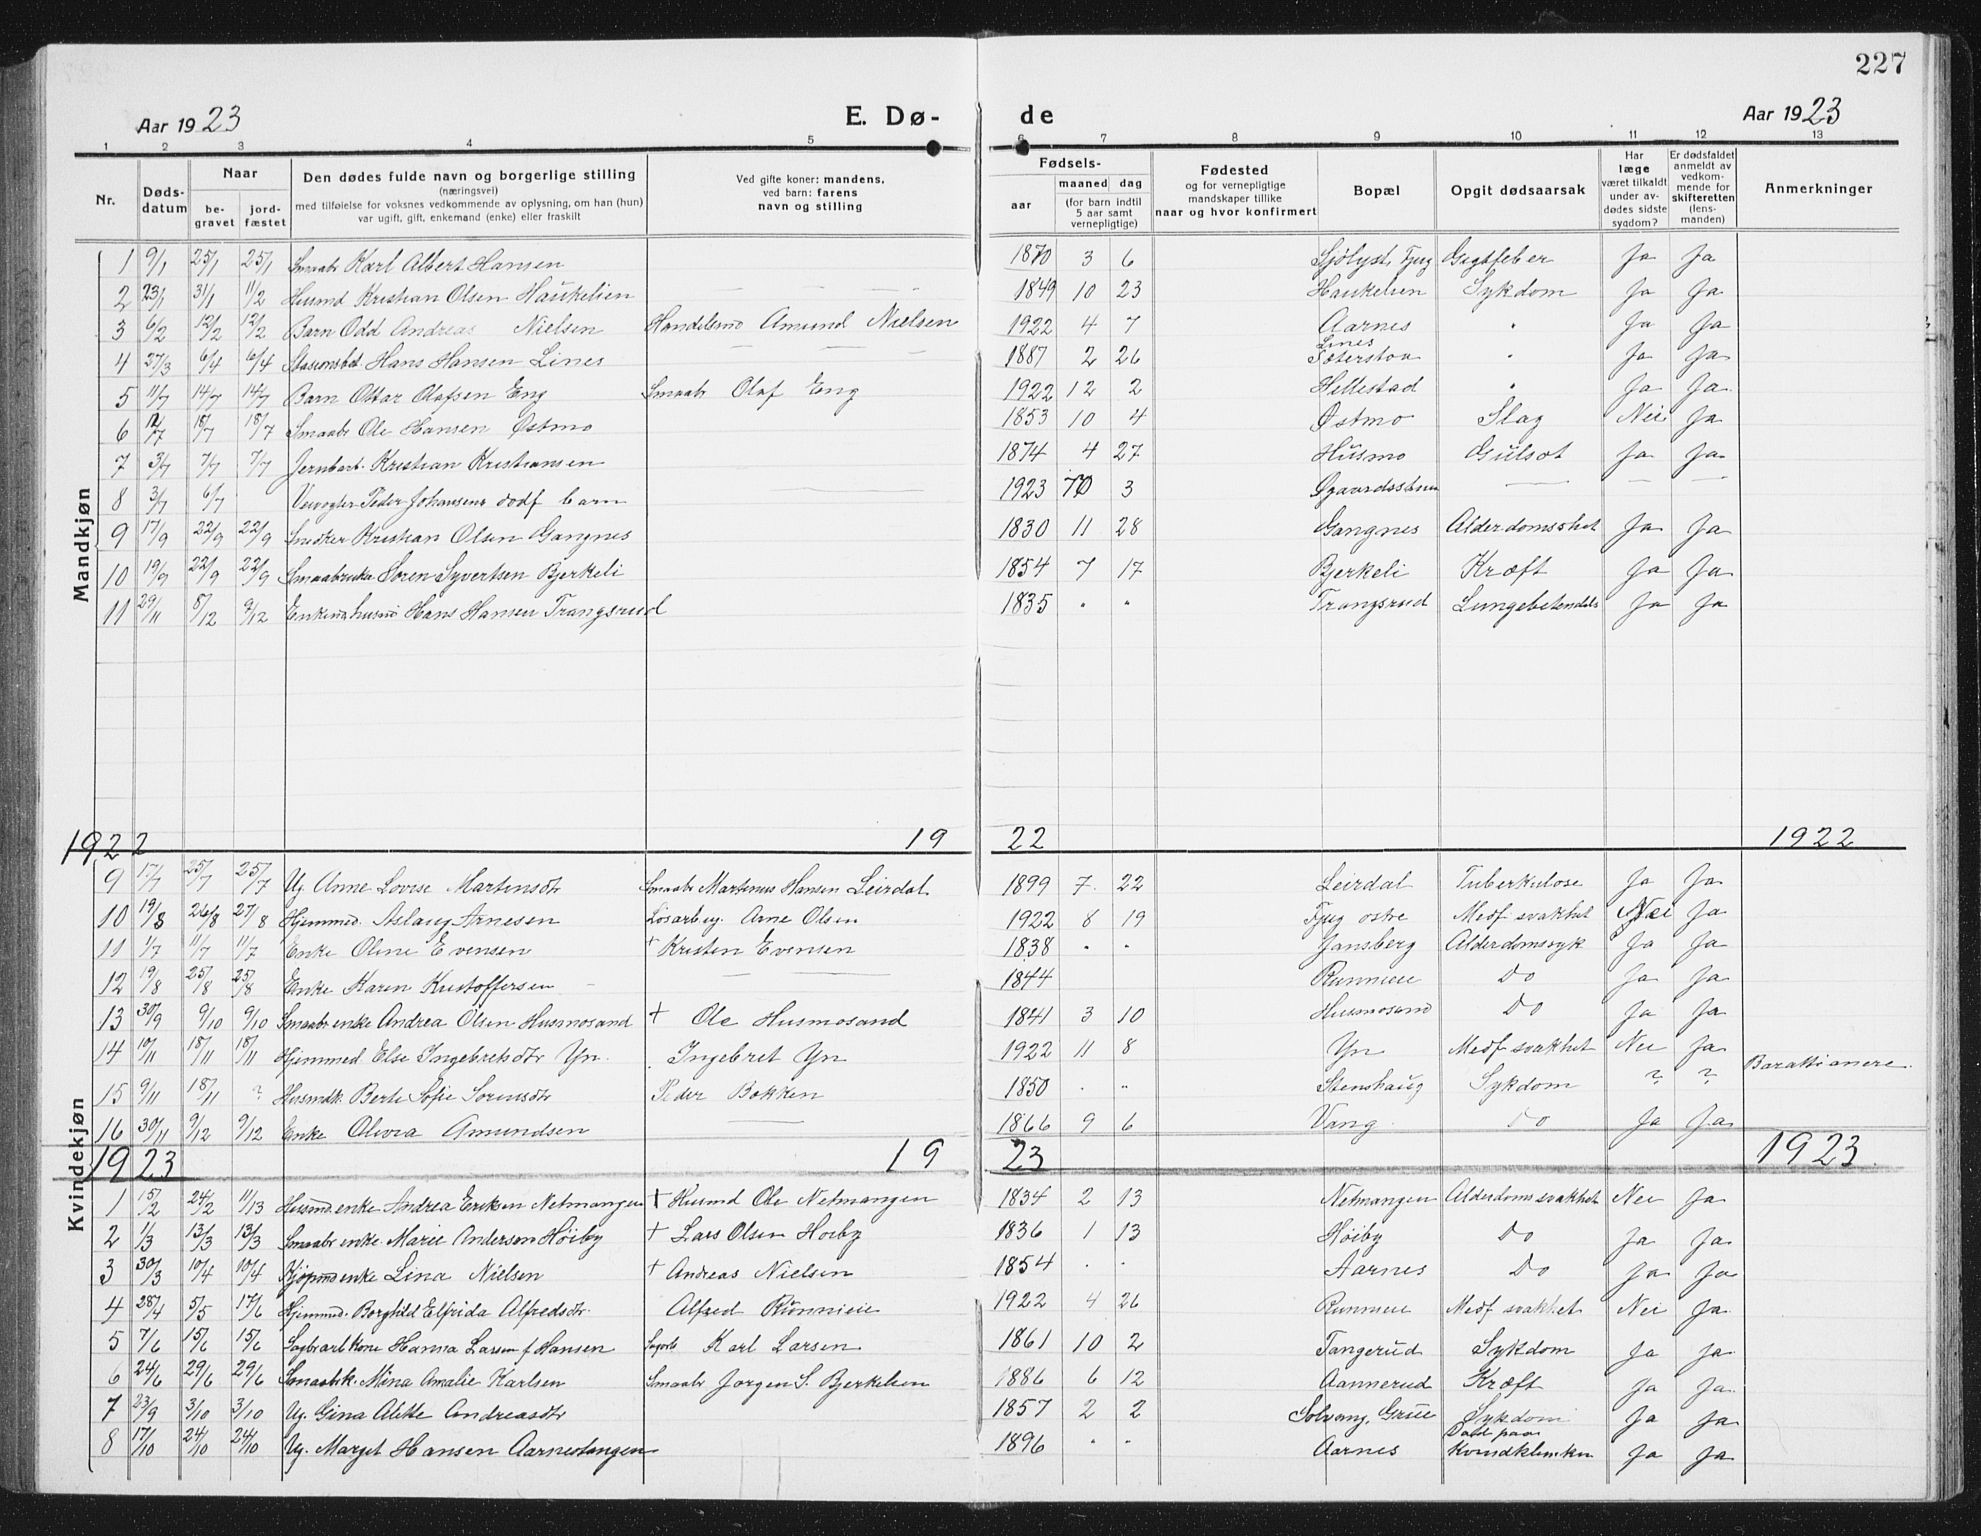 227
Aar 1923 E. Dø- de Aar 1923
1 2 3 4 5 6 7 8 9 10 11 12 13
Nr. Døds- datum Naar be- gravet jord- fæstet Den dødes fulde navn og borgerlige stilling (næringsvei) med tilføielse for voksnes vedkommende av oplysning, om han (hun) var ugift, gift, enkemand (enke) eller fraskilt Ved gifte koner: mandens, ved barn: farens navn og stilling Fødsels- aar maaned dag (for barn indtil 5 aar samt vernepligtige) Fødested og for vernepligtige mandskaper tillike naar og hvor konfirmert Bopæl Opgit dødsaarsak Har læge været tilkaldt under av- dødes sidste sygdom? Er dødsfaldet anmeldt av vedkom- mende for skifteretten (lens- manden) Anmerkninger
Mandkjøn
1 9/1 25/1 25/1 Smaabr Karl Albert Hansen 1870 3 6 Sjölyst, Fjug Gigtfeber Ja Ja
2 23/1 31/1 11/2 Husmd Kristian Olsen Haukelien — — — 1849 10 23 Haukelien Sykdom Ja Ja
3 6/2 12/2 12/2 Barn Odd Andreas Nielsen Handelsmd Amund Nielsen 1922 4 7 Aarnes " Ja Ja
4 27/3 6/4 6/4 Stasionsbet Hans Hansen Lines — — — 1887 2 26 Lines Sæterstøa " Ja Ja
5 11/7 14/7 14/7 Barn Ottar Olafsen Eng Smaabr Olaf Eng 1922 12 2 Hellestad " Ja Ja
6 12/7 18/7 18/7 Smaabr Ole Hansen Østmo 1853 10 4 Østmo Slag Nei Ja
7 3/7 7/7 7/7 Jernbarb. Kristian Kristiansen 1874 4 27 Husmo Gulsot Ja Ja
8 3/7 6/7 Veivogter Peder Johansens dødf barn 1923 70 3 — — —
9 17/9 22/9 22/9 Snedker Kristian Olsen Gangnes 1830 11 28 Gangnes Alderdomsshet Ja Ja
10 19/9 22/9 22/9 Smaabruker Søren Syvertsen Bjerkeli 1854 7 17 Bjerkeli Kræft Ja Ja
11 29/11 8/12 9/12 Enkemd husmd Hans Hansen Trangsrud 1835 " " Trangsrud Lungebetendels Ja Ja
1922 19 22 1922
Kvindekjøn
9 17/7 25/7 25/7 Ug. Anne Lovise Martinsdtr Smaabr Martinus Hansen Leirdal 1899 7 22 Leirdal Tuberkulose Ja Ja
10 19/8 26/8 27/8 Hjemmed. Aslaug Arnesen Løsarb ug. Arne Olsen 1922 8 19 Fjug østre Medf svakhet Nei Ja
11 1/7 11/7 11/7 Enke Oline Evensen † Kristen Evensen 1838 " " Jansberg Alderdomssyk Ja Ja
12 19/8 25/8 25/8 Enke Karen Kristoffersen — — 1844 Runnieie Do Ja Ja
13 30/9 9/10 9/10 Smaabr enke Andrea Olsen Husmosand † Ole Husmosand 1841 3 10 Husmosand Do Ja Ja
14 10/11 18/11 18/11 Hjemmed Else Ingebretsdtr Yn. Ingebret Yn 1922 11 8 Yn Medf svakhet Nei Ja
15 9/11 18/11 ? Husmdk. Berte Sofie Sörensdtr Peder Bakken 1850 " " Stenshaug Sykdom ? ? Baraktianere
16 30/11 9/12 9/12 Enke Olivia Amundsen — 1866 9 6 Vang Do Ja Ja
1923 19 23 1923
1 15/2 24/2 11/13 Husmd enke Andrea Eriksen Netmangen † Husmd Ole Netmangen 1834 2 13 Netmangen Alderdomssvakhet Nei Ja
2 1/3 13/3 13/3 Smaabr enke Marie Andersen Høiby † Lars Olsen Hoiby 1836 1 13 Høiby Do Ja Ja
3 30/3 10/4 10/4 Kjøpmd enke Lina Nielsen † Andreas Nielsen 1854 " " Aarnes Do Ja Ja
4 28/4 5/5 17/6 Hjemmed. Borghild Elfrida Alfredsdtr. Alfred Runnieie 1922 4 26 Runnieie Medf svakhet Nei Ja
5 7/6 15/6 15/6 Sagbr arb kone Hanna Larsen f Hansen Karl Larsen 1861 10 2 Tangerud Sykdom Ja Ja
6 24/6 29/6 29/6 Smaabk. Mina Amalie Karlsen Smaabr Jørgen S. Bjerkelien 1886 6 12 Aannerud Kræft Ja Ja
7 23/9 3/10 3/10 Ug. Gina Alette Andreasdtr 1857 2 2 Solvang, Grue Sykdom Ja Ja
8 17/10 24/10 24/10 Ug. Margit Hansen Aarnestangen 1896 " " Aarnes Død paa Kvindkliniken Ja Ja